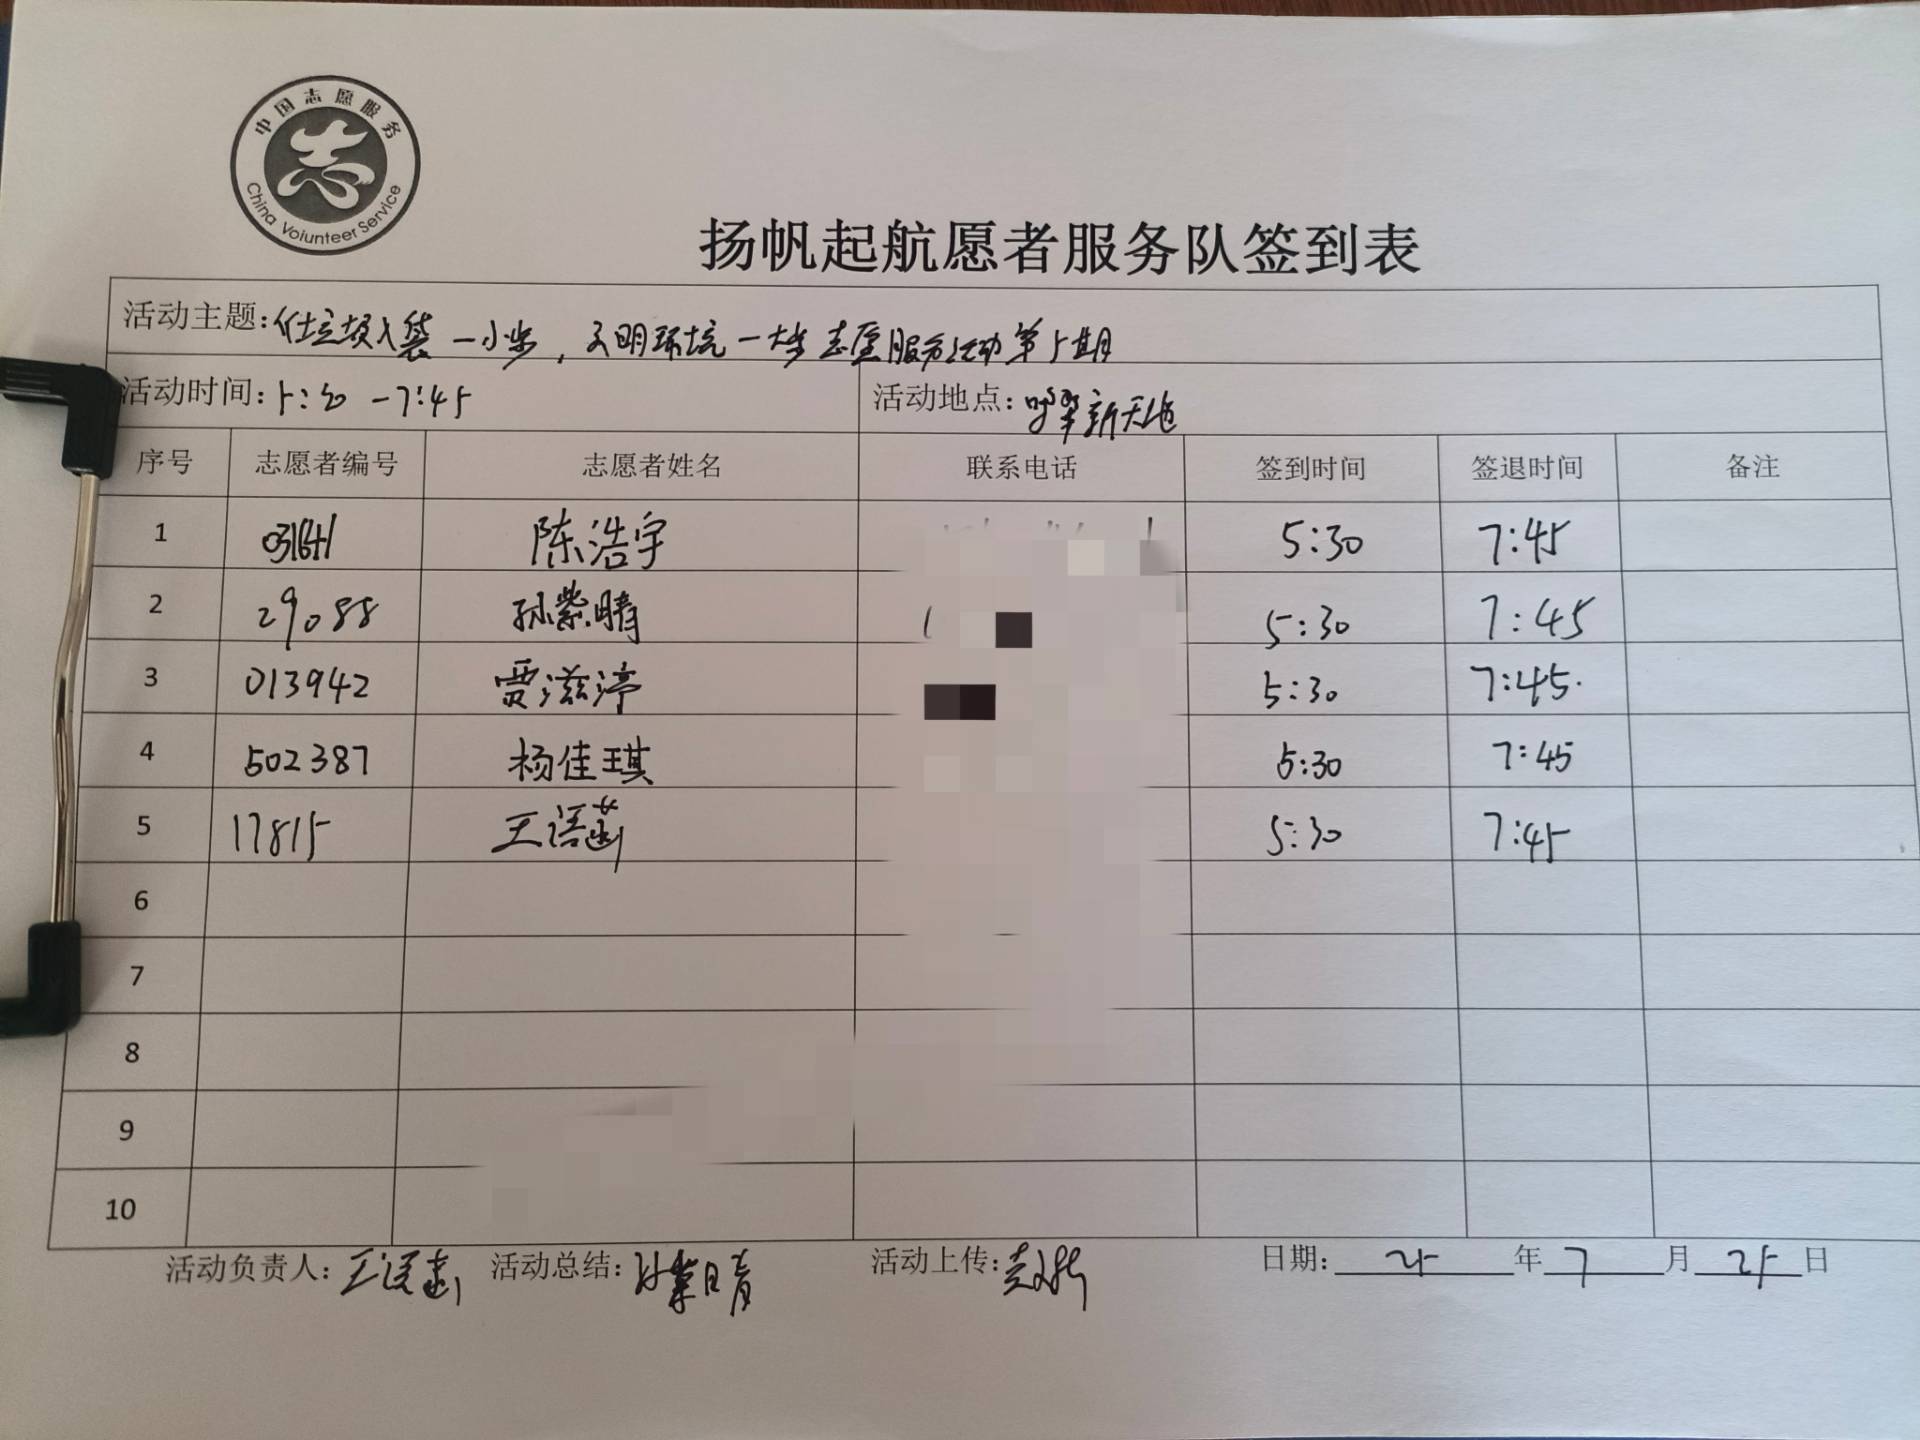 中国志愿服务
志
China Voiunteer Service
扬帆起航愿者服务队签到表
活动主题: 垃圾入袋一小步,文明环境一大步志愿服务活动第5期
活动时间:5:30-7:45 活动地点: 新天地
序号 志愿者编号 志愿者姓名 联系电话 签到时间 签退时间 备注
1 陈浩宇 5:30 7:45
2 29088 孙紫晴 5:30 7:45
3 013942 贾滋渟 5:30 7:45.
4 502387 杨佳琪 5:30 7:45
5 17815 王语菡 5:30 7:45
6
7
8
9
10
活动负责人:王语菡 活动总结:孙紫晴 活动上传: 日期: 25 年 7 月 25 日